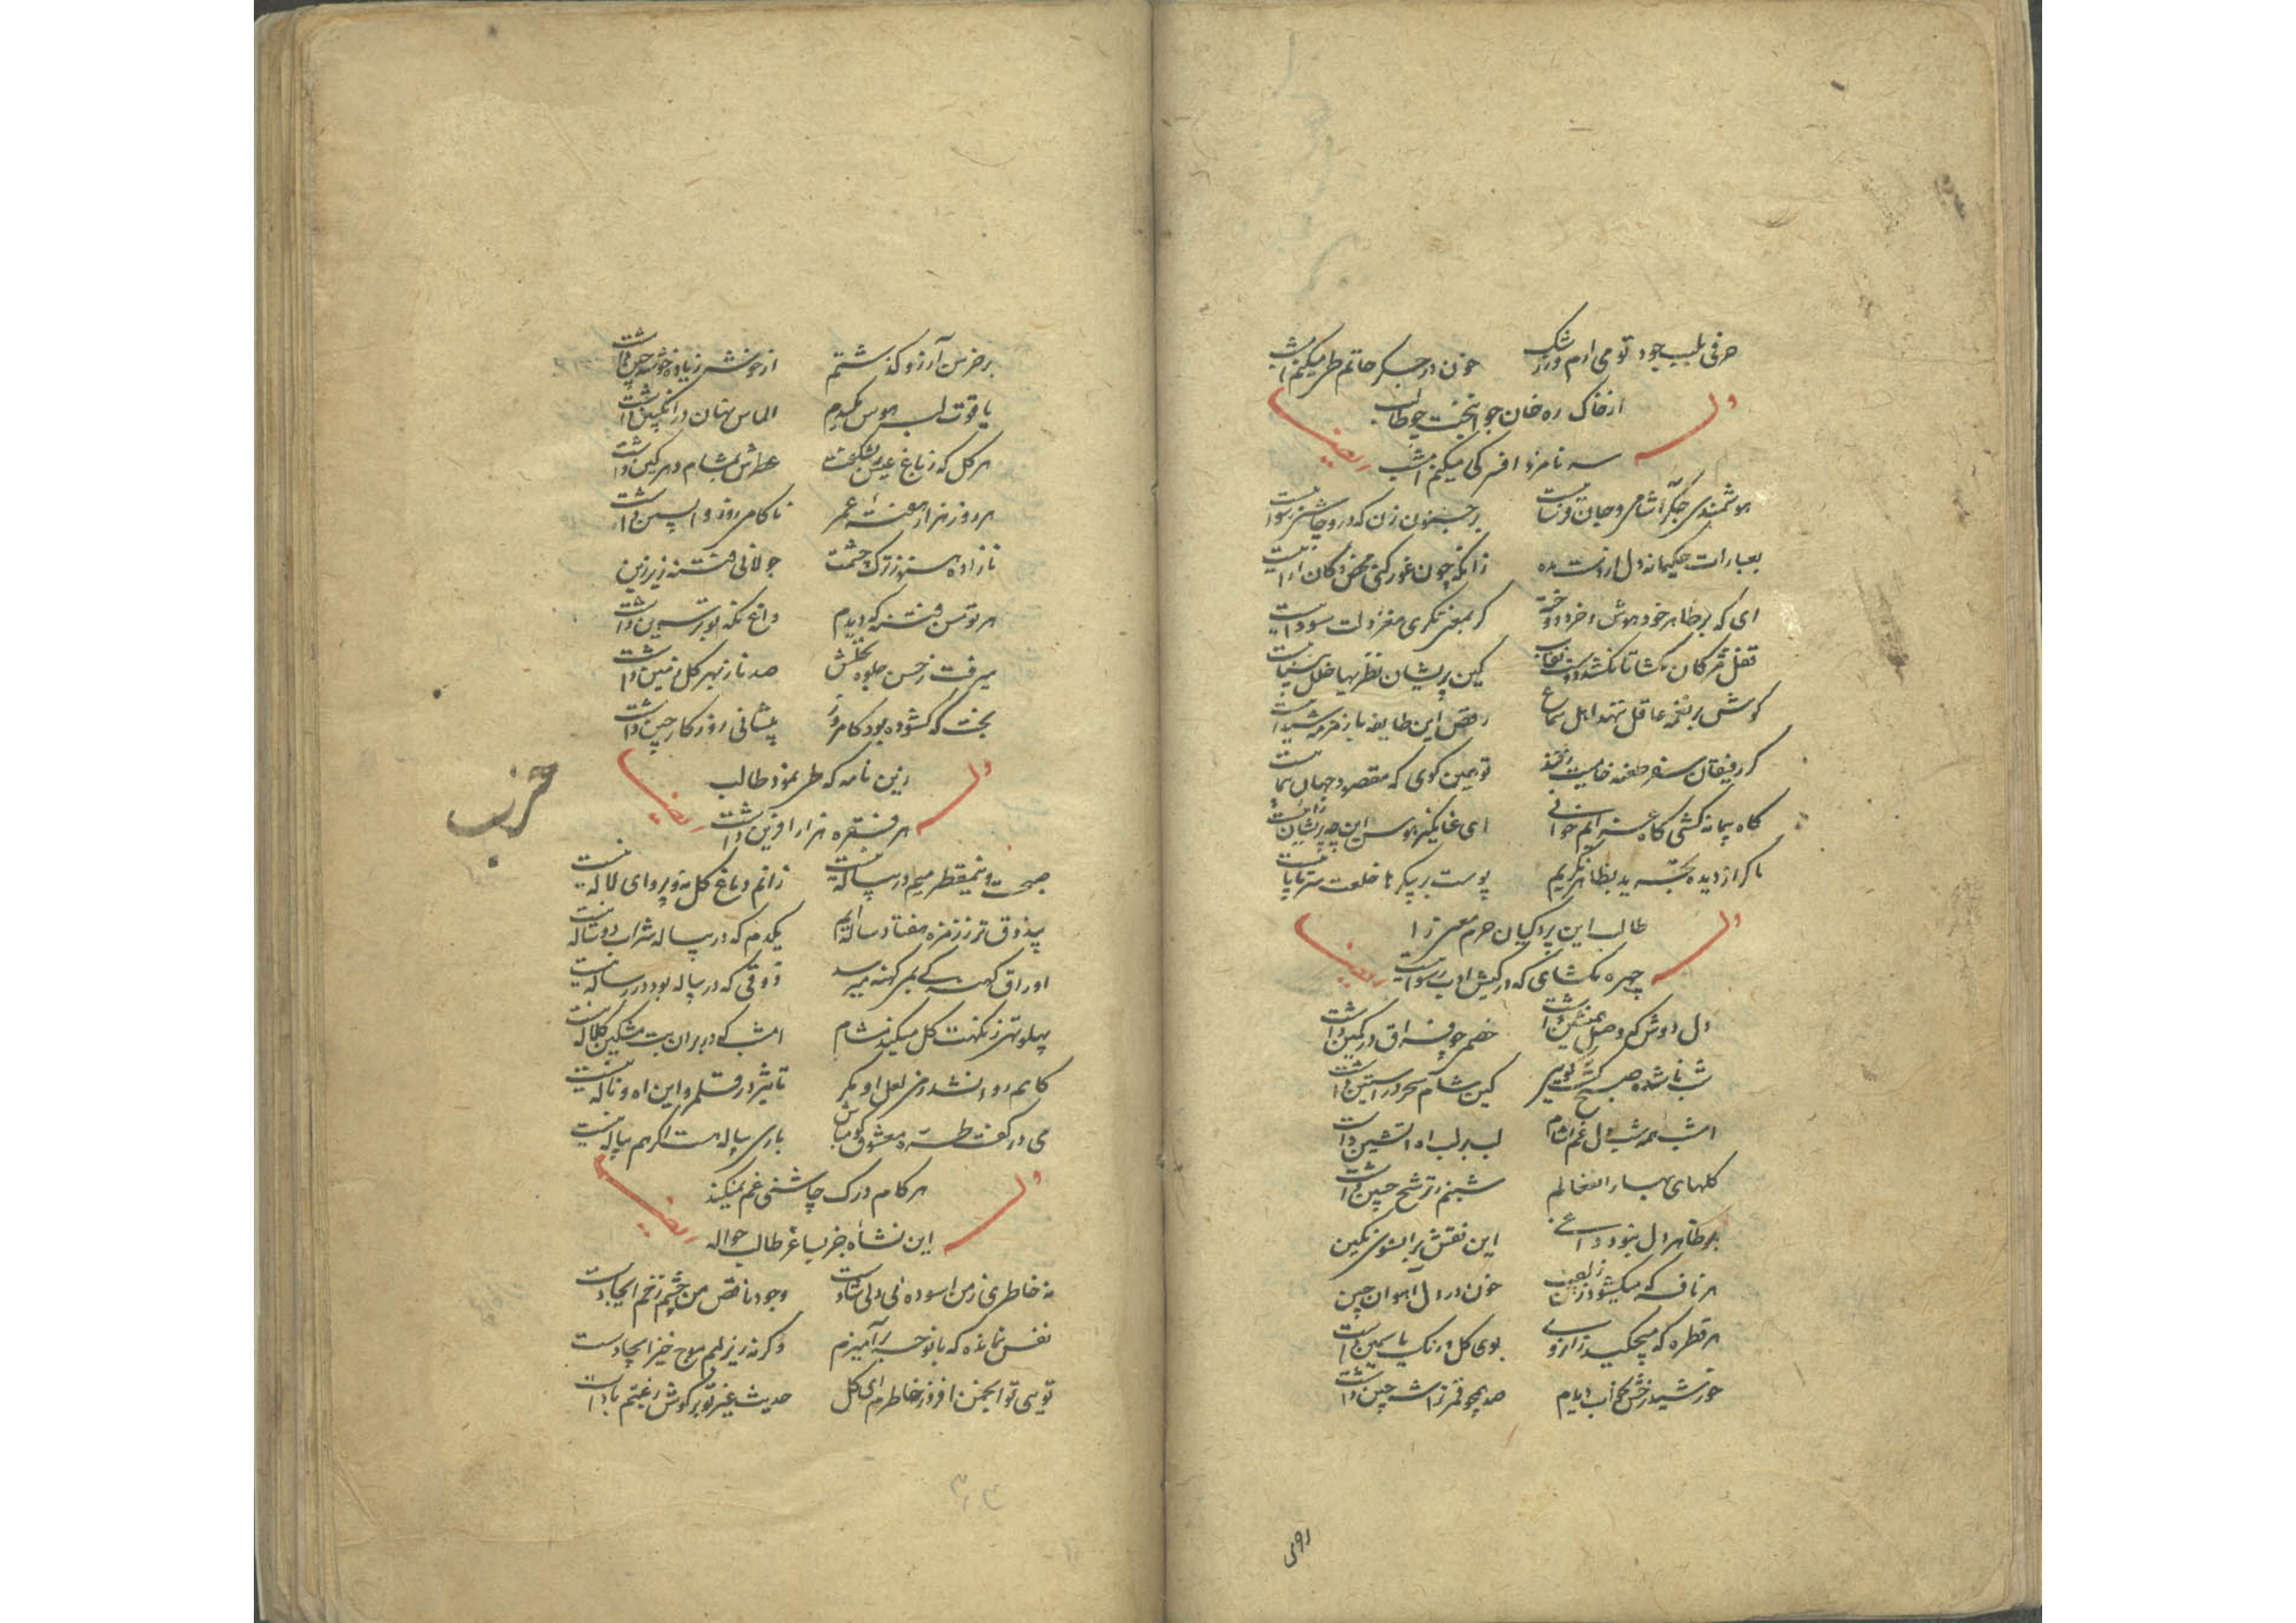 حرفی بلب جود تو می ارم و از رشک خون در جگر حاتم طی میکنم امشب
از خاک ره خان جوانبخت چو طالب
وله ایضا
سه نامزد افسر کی میکنم امشب
هوشمندی جگر آشامی و جان فرساست بر جنون زن که درو چاشنی سوداست
بعبارات حکیمانه دل از دست مده زانکه چون غور کنی محض
ای که بر ظاهر خود هوش و خرد دوخته گر بمعنی نگری مغز دلت سوداییست
قفل مژگان مگشا تا نگشودست نقاب کین پریشان نظریها خلل بیناییست
گوش بر نغمه عاقل ننهد اهل سماع رقص این طایفه با زمزمه شیداییست
گر رفیقان سفر طعنه خامیت زنند تو همین گوی که مقصود جهان پیماییست
گاه پیمانه کشی گاه عزایم خوانی ای غنایگر هوس این چه پریشان راییست
ما گر از دیده تجرید بظاهر نگریم پوست بر پیکر ما خلعت سرتاپاییست
طالب این پردگیان حرم معنی را
وله ایضا
چهره مگشای که در کیش ادب رسواییست
دل دوش که وصل همنشین داشت خصمی چو فراق در کمین داشت
شب نا شده صبح گشت گویی کین شام سحر در آستین داشت
امشب همه شب دل غم اشام لب بر لب اه اتشین داشت
گلهای بهار انفعالم شبنم ز ترشح جبین داشت
بر ظاهر دل نبود داغی این نقش بر انسوی نگین
هر نافه که میگشود زلفت خون در دل آهوان چین
هر قطره که میچکید زان روی بوی گل و رنگ یاسمین داشت
خورشید رخش بخواب دیدم صد همچو قمر ز خوشه چین داشت
بر خرمن آرزو گذشتم از خوشه زیاده خوشه چین داشت
یاقوت لب هوس مکیدم الماس نهان در انگبین داشت
هر گل که ز باغ عیش بشکفت عطرش بمشام زهر کین داشت
هر روز هزار هفته عمر ناکامی روز واپسین داشت
نازاده هنوز ترک چشمت جولانی فتنه زیر زین
هر توسن فتنه که دیدم داغ نگه تو بر سرین داشت
میرفت ز حسن جلوه نخلش صد ناز بهر گل زمین داشت
بخت که گشوده بود کامروز پیشانی روزگار چین داشت
زین نامه که طی نمود طالب
وله ایضا
هر فقره هزار آفرین داشت
صبحست و نیم قطره میم در پیاله نیست زانم دماغ گل نه و پروای لاله نیست
بیذوق تر ز زمزه هفتاد ساله ایم یکدم که در پیاله شراب دو ساله نیست
اوراق کهنه کی بمی کهنه میرسد ذوقی که در پیاله بود در رساله نیست
پهلو تهی ز نکهت گل میکند مشام امشب که در بر ان بت مشکین کلاله نیست
کامم روا نشد ز می لعل او مگر تاثیر در قلمرو این اه و ناله نیست
می در کفست طره معشوق گو مباش باری پیاله هست اگر هم پیاله نیست
هر کام درک چاشنی غم نمیکند
وله ایضا
این نشاه جز بساغر طالب حواله
نه خاطری ز من اسوده نی دلی شادست وجود ناقص من چشم زخم ایجادست
نفس نمانده که با نوحه بر آمیزم وگرنه زیر لبم موج خیز ایجادست
تویی تو انجمن افروز خاطرم ای گل حدیث غیر تو بر گوش رغبتم بادست